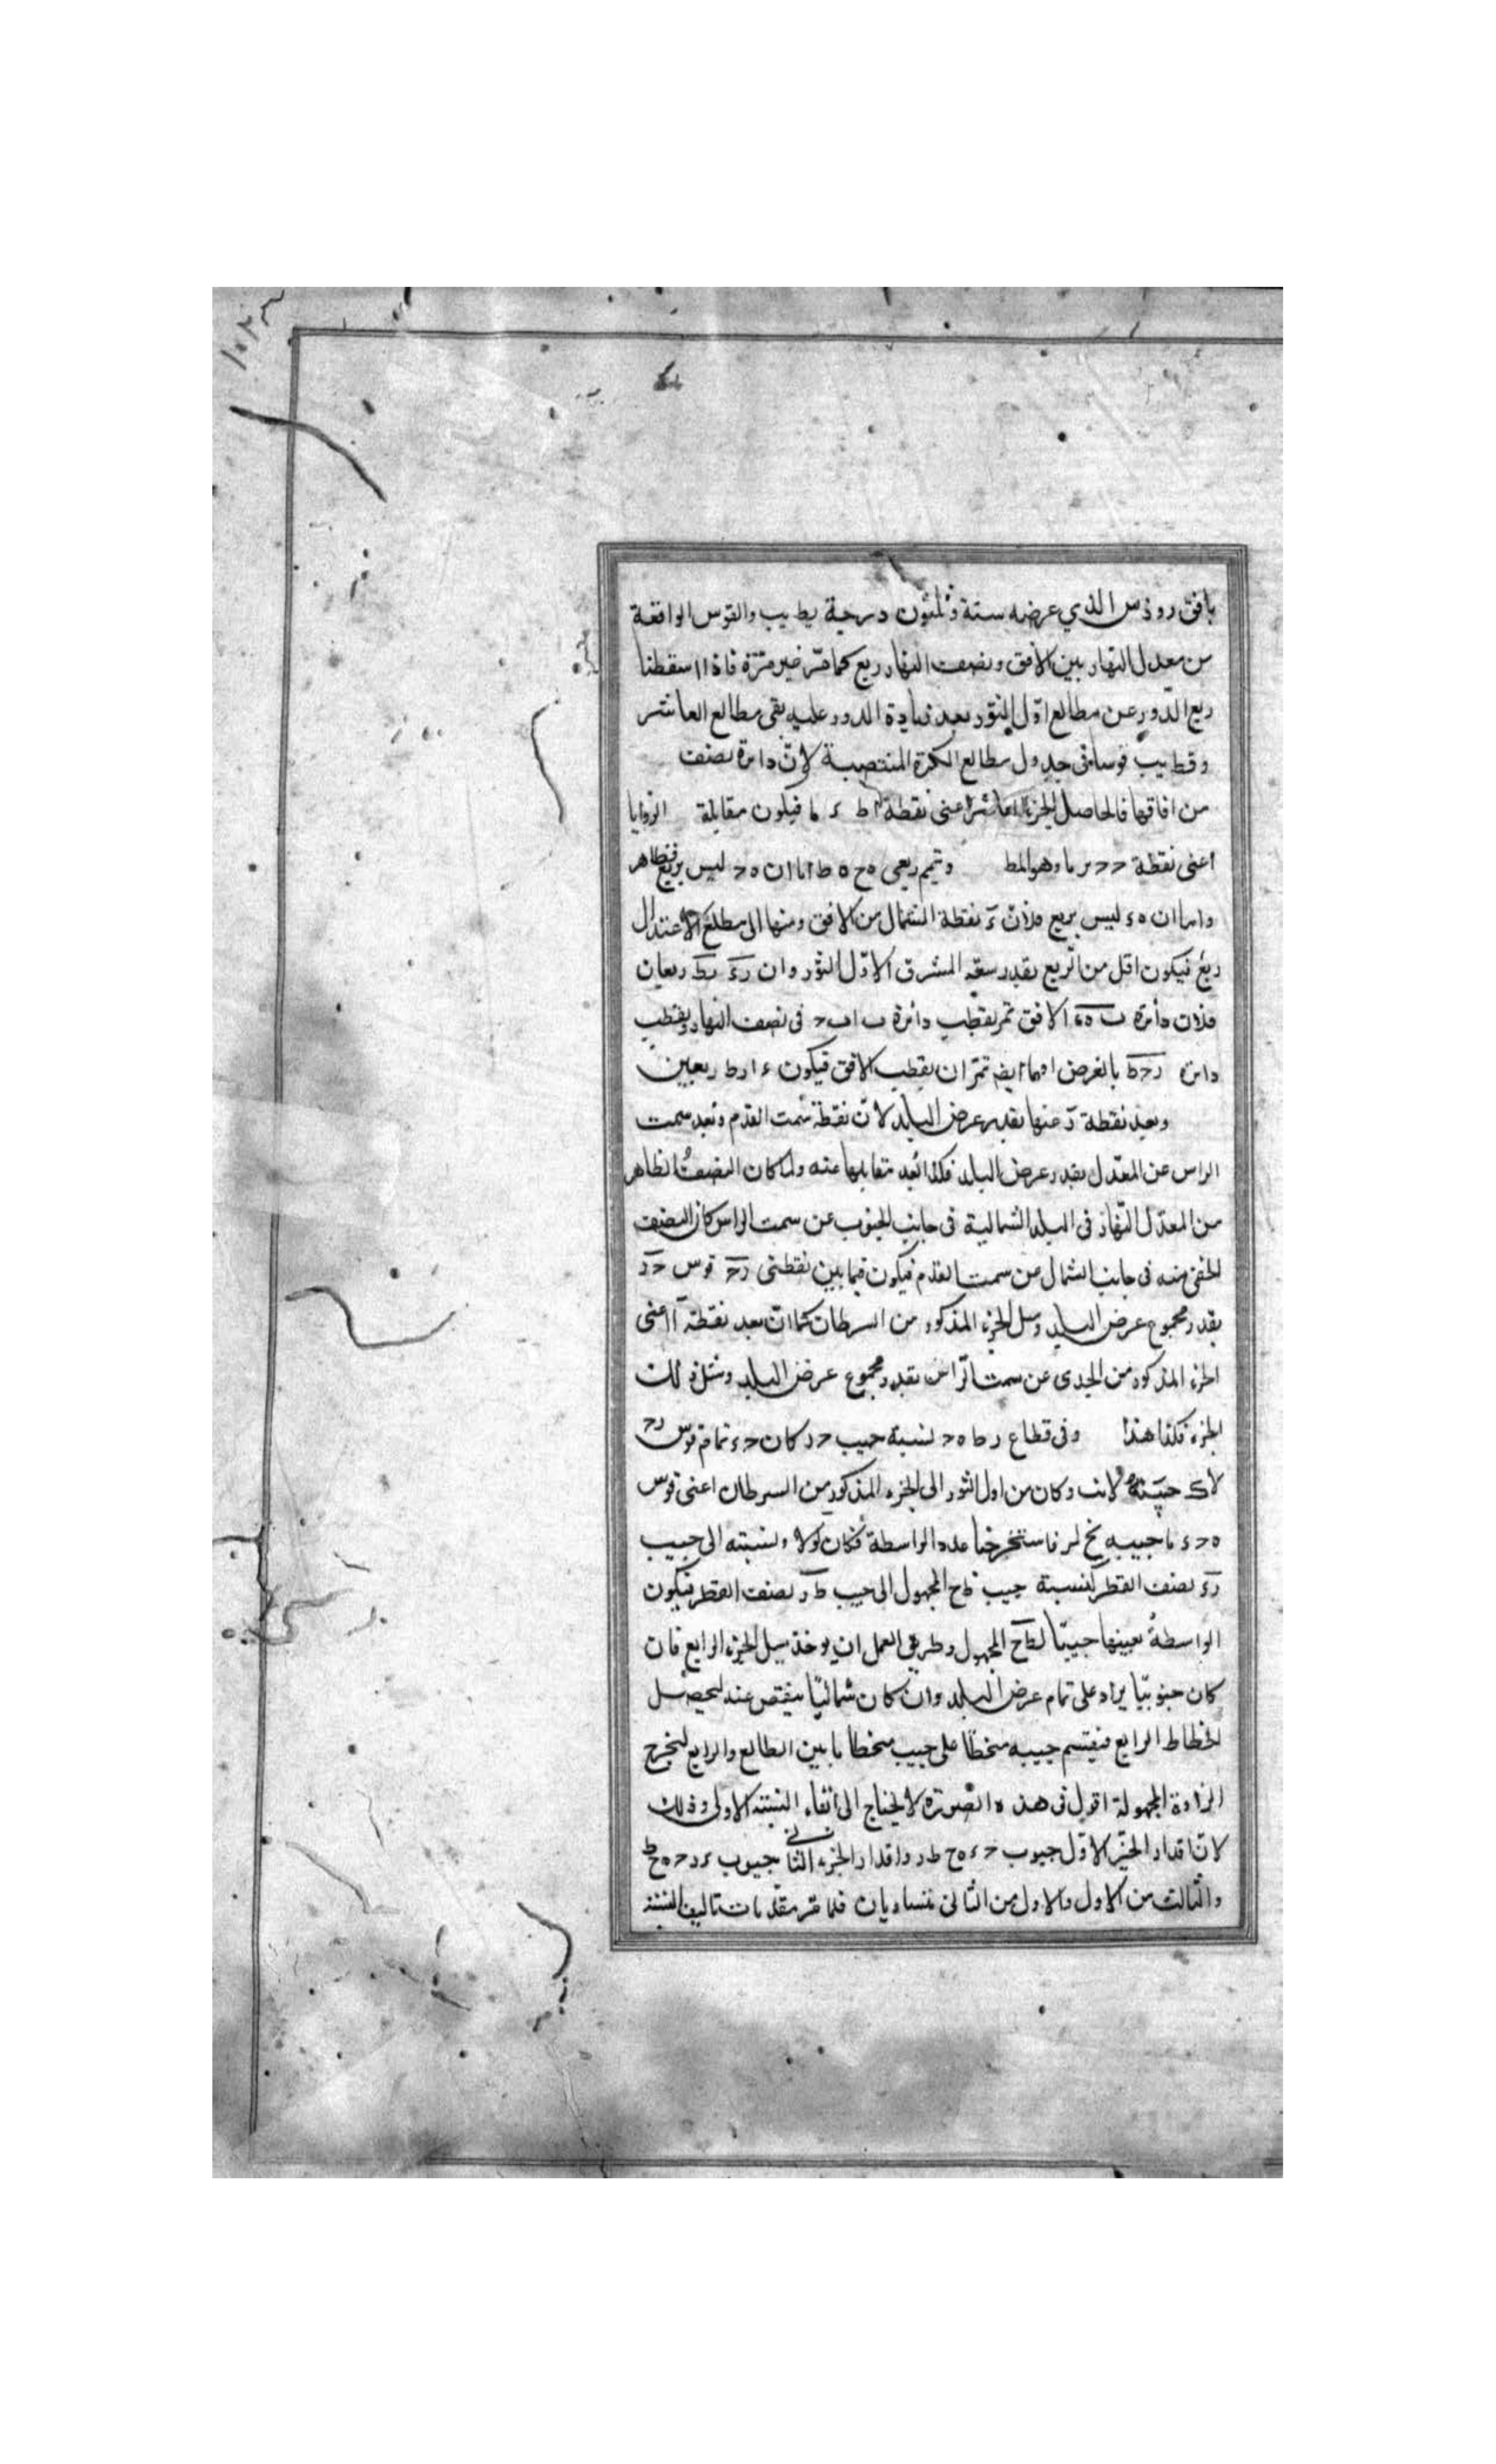 بافق رودس الذي عرضه ستة وثلثون درجة يط يب والقوس الواقعة
من معدل النهار بين الافق ونصف النهار ربع كما مر غير مرة فاذا اسقطنا
ربع الدور عن مطالع اول الثور بعد زيادة الدور عليه بقى مطالع العاشر
وقط يب قوسا فى جدول مطالع الكرة المنتصبة لان دائرة نصف
من افاقها فالحاصل الجزء العاشر اعنى نقطة ا ط ء ما فيكون مقابلة الزوايا
اعنى نقطة ح د ما وهو المط وتتميم ربعى ه ح ه ط اما ان ه ح ليس بربع فظاهر
واما ان ه ء ليس بربع فلان ء نقطة الشمال من الافق ومنها الى مطلع الاعتدال
ربع فيكون اقل من الربع بقدر سعة المشرق الاول الثور وان رء رط ربعان
فلان دائرة ب ه ء الافق تمر بقطب دائرة ب ا ح فى نصف النهار وبقطب
دائرة رح ط بالفرض اوهما ايضا تمران بقطب الافق فيكون ء ا رط ربعين
وبعد نقطة ر عنها بقدر عرض البلد لان نقطة سمت القدم وبعد سمت
الراس عن المعدل بقدر عرض البلد فكذا بعد مقابلها عنه ولما كان النصف الظاهر
من المعدل النهار فى البلد الشمالية فى جانب الجنوب عن سمت الراس كان النصف
الخفى منه فى جانب الشمال من سمت القدم فيكون فيما بين نقطتى رح قوس ح ر
بقدر مجموع عرض البلد وميل الجزء المذكور من السرطان كما ان بعد نقطة ا اعنى
الجزء المذكور من الجدى عن سمت الراس بقدر مجموع عرض البلد ومثل ذلك
الجزء فكذا هذا وفى قطاع ر ط ه ح لنسبة جيب ح ر كان ح ء تمام قوس رح
وكان من اول الثور الى الجزء المذكور من السرطان اعنى قوس
ه ح ء ما جيبه نح لر فاستخرجنا عدد الواسطة فكان ونسبته الى جيب
رء نصف القطر كنسبة جيب ط ح المجهول الى جيب ط ر نصف القطر فيكون
الواسطة بعينها جيبا لط ح المجهول وطريق العمل ان يوخذ ميل الجزء الرابع فان
كان جنوبيا يزاد على تمام عرض البلد وان كان شماليا ينقص عنه ليحصل
انحطاط الرابع فيقسم جيبه منحطا على جيب منحطا ما بين الطالع والرابع ليخرج
الزاوية المجهولة اقول فى هذه الصورة لا يحتاج الى القاء النسبة الاولى وذلك
لان اقدار الجزء الاول جيوب ح ء ه ح ط ر واقدار الجزء الثانى جيوب ء ر ح ه ح ط
والثالث من الاول والاول من الثانى متساويان فلما مر مقدمات تاليف النسبة